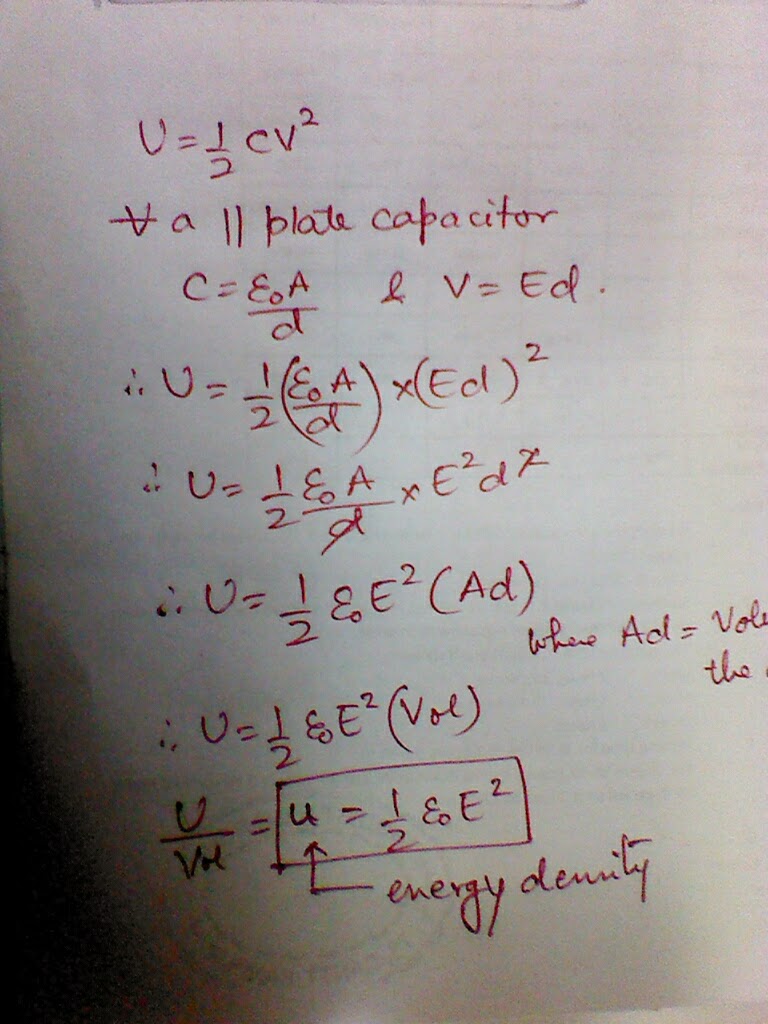 U = 1/2 CV²
∀ a || plate capacitor
C = ε₀A/d & V = Ed.
∴ U = 1/2 (ε₀A/d) × (Ed)²
∴ U = 1/2 ε₀A/d × E²d²
∴ U = 1/2 ε₀E² (Ad)
where Ad = Vol
the
∴ U = 1/2 ε₀E² (Vol)
U/Vol = u = 1/2 ε₀E²
energy density